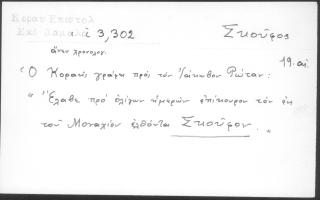 Κοραῆ Ἐπιστολ
Ἐκδ Δαμαλᾶ 3,302
Σκοῦφος
ἄνευ χρονολογ.
19. αἰ
Ὁ Κοραῆς γράφει πρὸς τὸν Ἰάκωβον Ῥώταν:
"Ἔλαβε πρὸ ὀλίγων ἡμερῶν ἐπίκουρον τὸν ἐκ
τοῦ Μοναχίου ἐλθόντα Σκοῦφον."